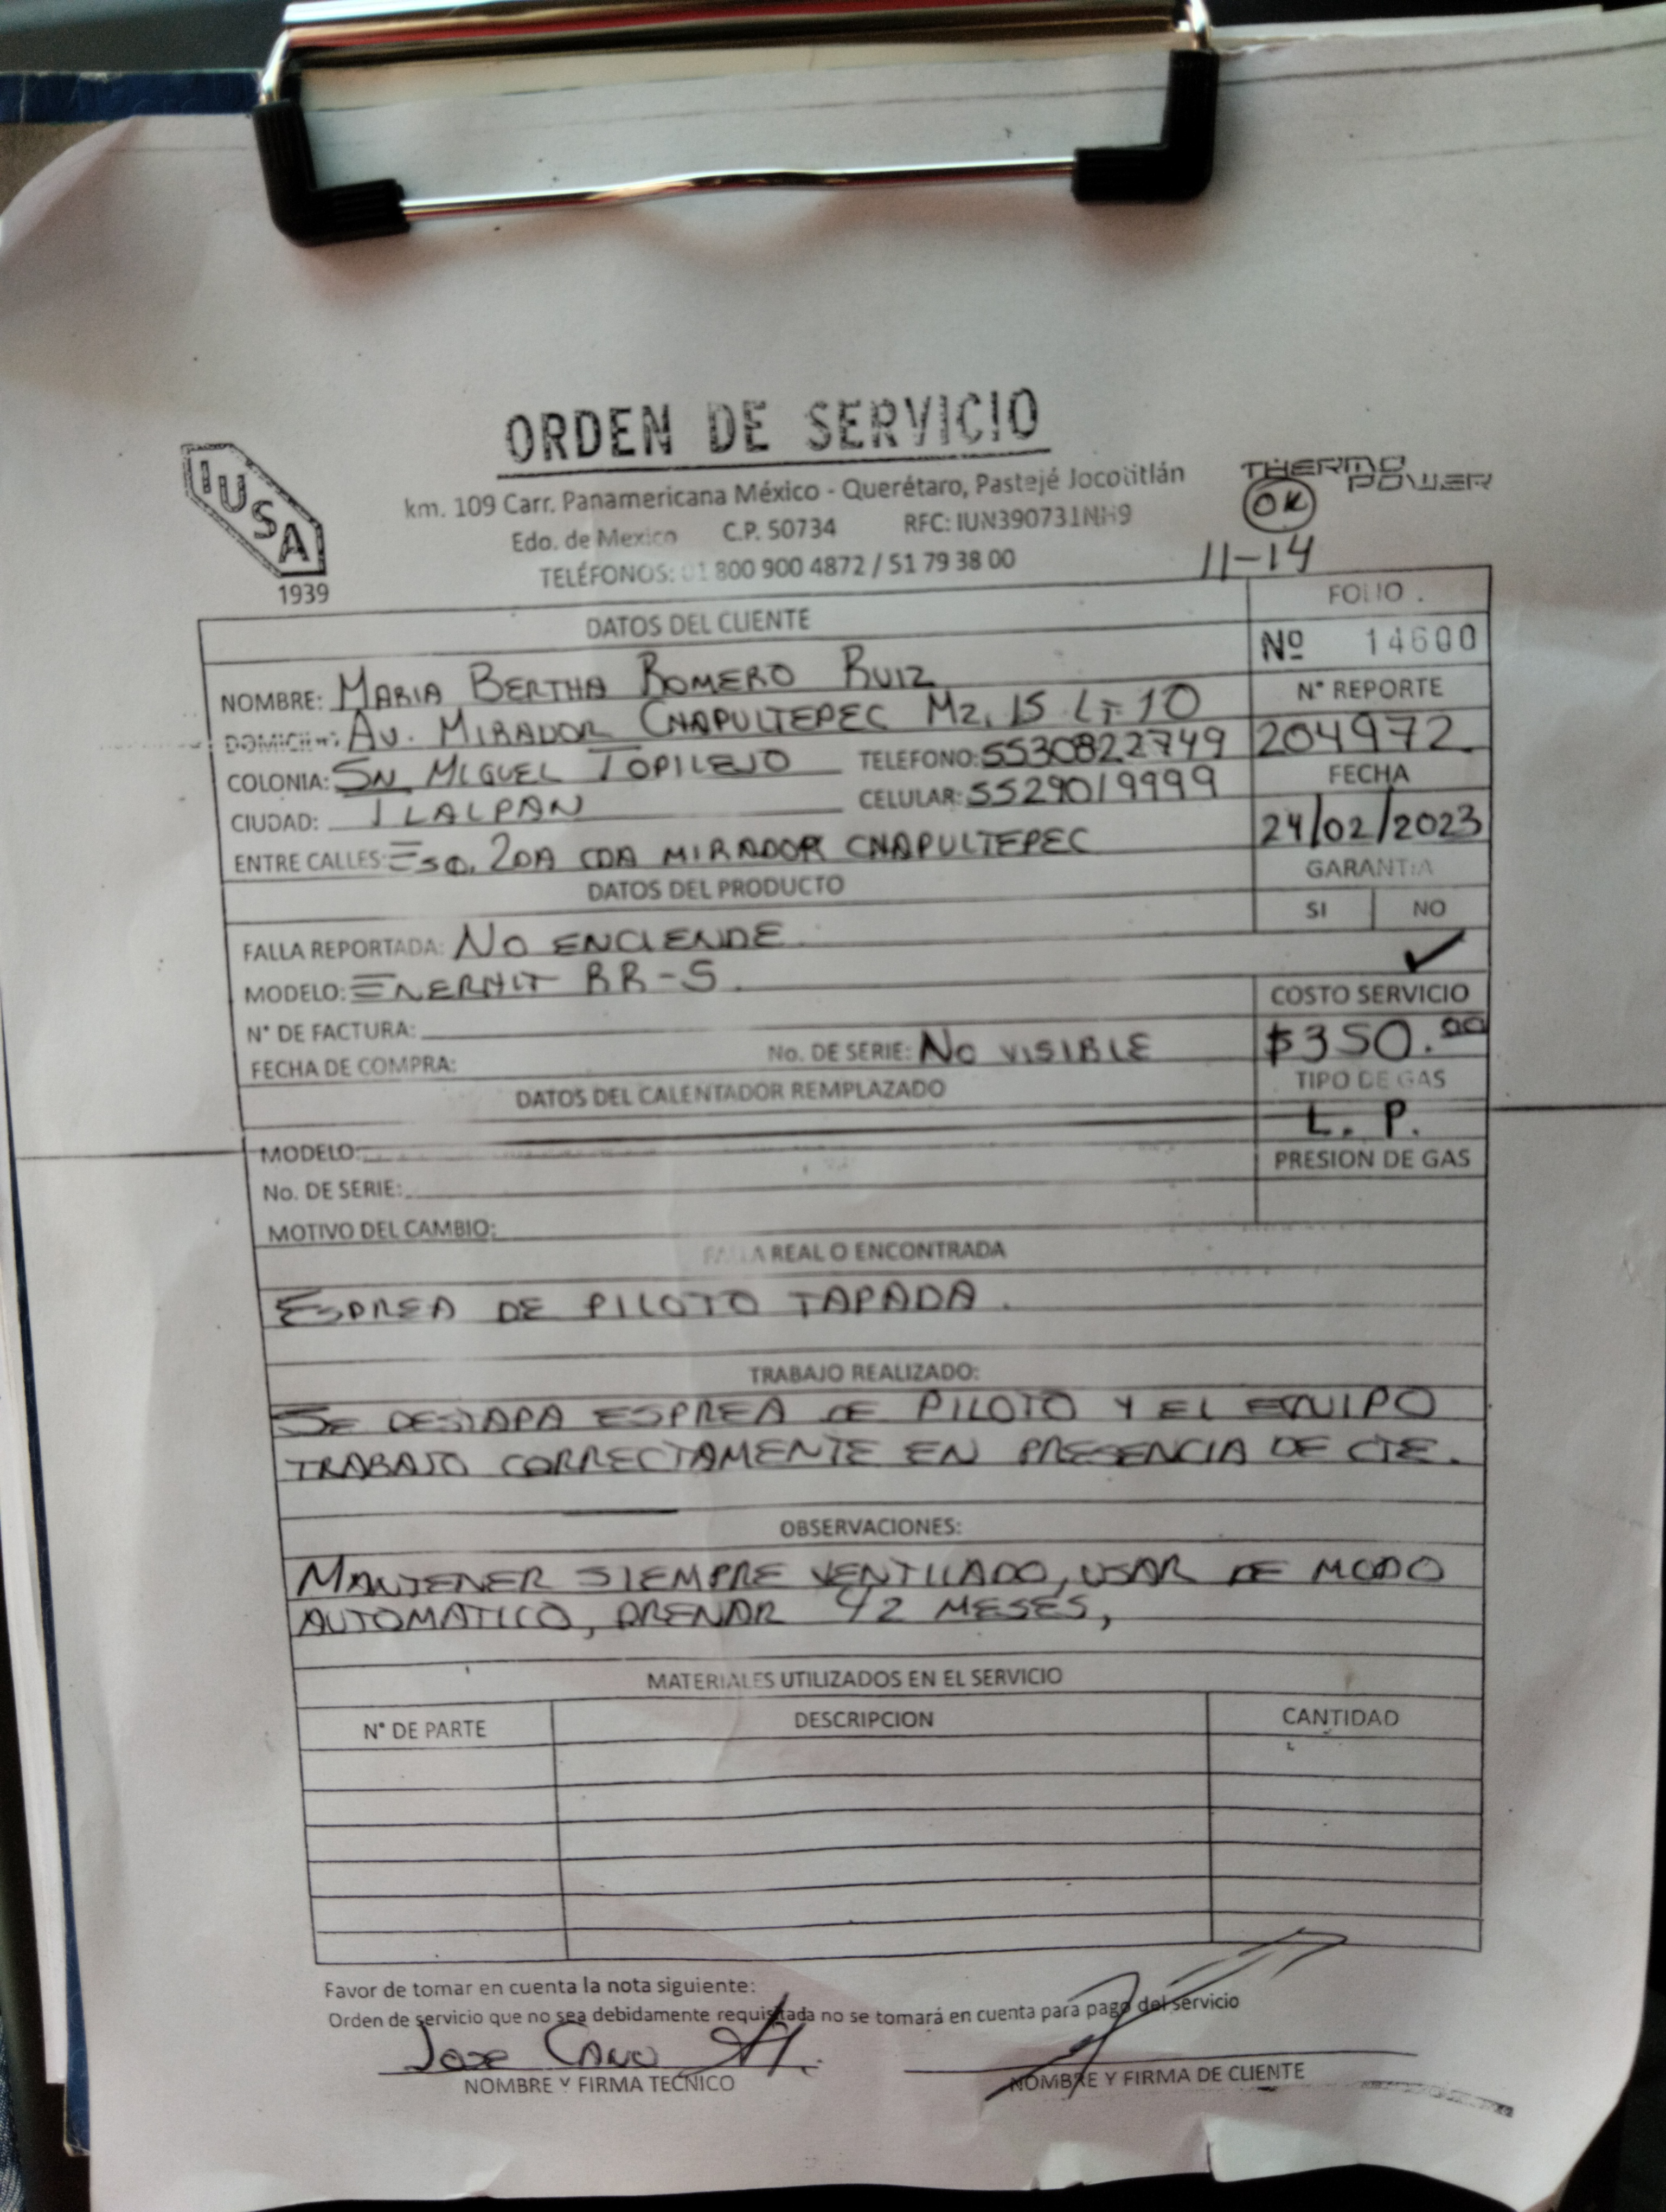 ORDEN DE SERVICIO
IUSA
1939
km. 109 Carr. Panamericana México - Querétaro, Pastejé Jocotitlán
Edo. de Mexico C.P. 50734 RFC: IUN390731NH9
TELÉFONOS: 01 800 900 4872 / 51 79 38 00
THERMO POWER
OK
11-14
DATOS DEL CLIENTE
FOLIO
Nº 14600
NOMBRE: MARIA BERTHA ROMERO RUIZ
N° REPORTE
DOMICILIO: AV. MIRADOR CHAPULTEPEC MZ. 15 LT 10
204972
COLONIA: SN MIGUEL TOPILEJO TELEFONO: 5530822749
FECHA
CIUDAD: TLALPAN CELULAR: 5529019999
24/02/2023
ENTRE CALLES: ESQ. 2DA CDA MIRADOR CHAPULTEPEC
GARANTIA
DATOS DEL PRODUCTO
SI NO
FALLA REPORTADA: NO ENCIENDE
✓
MODELO: ENERHIT RR-S
COSTO SERVICIO
N° DE FACTURA:
$350.00
FECHA DE COMPRA: No. DE SERIE: NO VISIBLE
TIPO DE GAS
DATOS DEL CALENTADOR REMPLAZADO
L. P.
MODELO:
PRESION DE GAS
No. DE SERIE:
MOTIVO DEL CAMBIO:
FALLA REAL O ENCONTRADA
ESPREA DE PILOTO TAPADA.
TRABAJO REALIZADO:
SE DESTAPA ESPREA DE PILOTO Y EL EQUIPO
TRABAJO CORRECTAMENTE EN PRESENCIA DE CTE.
OBSERVACIONES:
MANTENER SIEMPRE VENTILADO, USAR DE MODO
AUTOMATICO, DRENAR C/2 MESES,
MATERIALES UTILIZADOS EN EL SERVICIO
N° DE PARTE DESCRIPCION CANTIDAD
Favor de tomar en cuenta la nota siguiente:
Orden de servicio que no sea debidamente requisitada no se tomará en cuenta para pago del servicio
JOSE CANO
NOMBRE Y FIRMA TECNICO
NOMBRE Y FIRMA DE CLIENTE